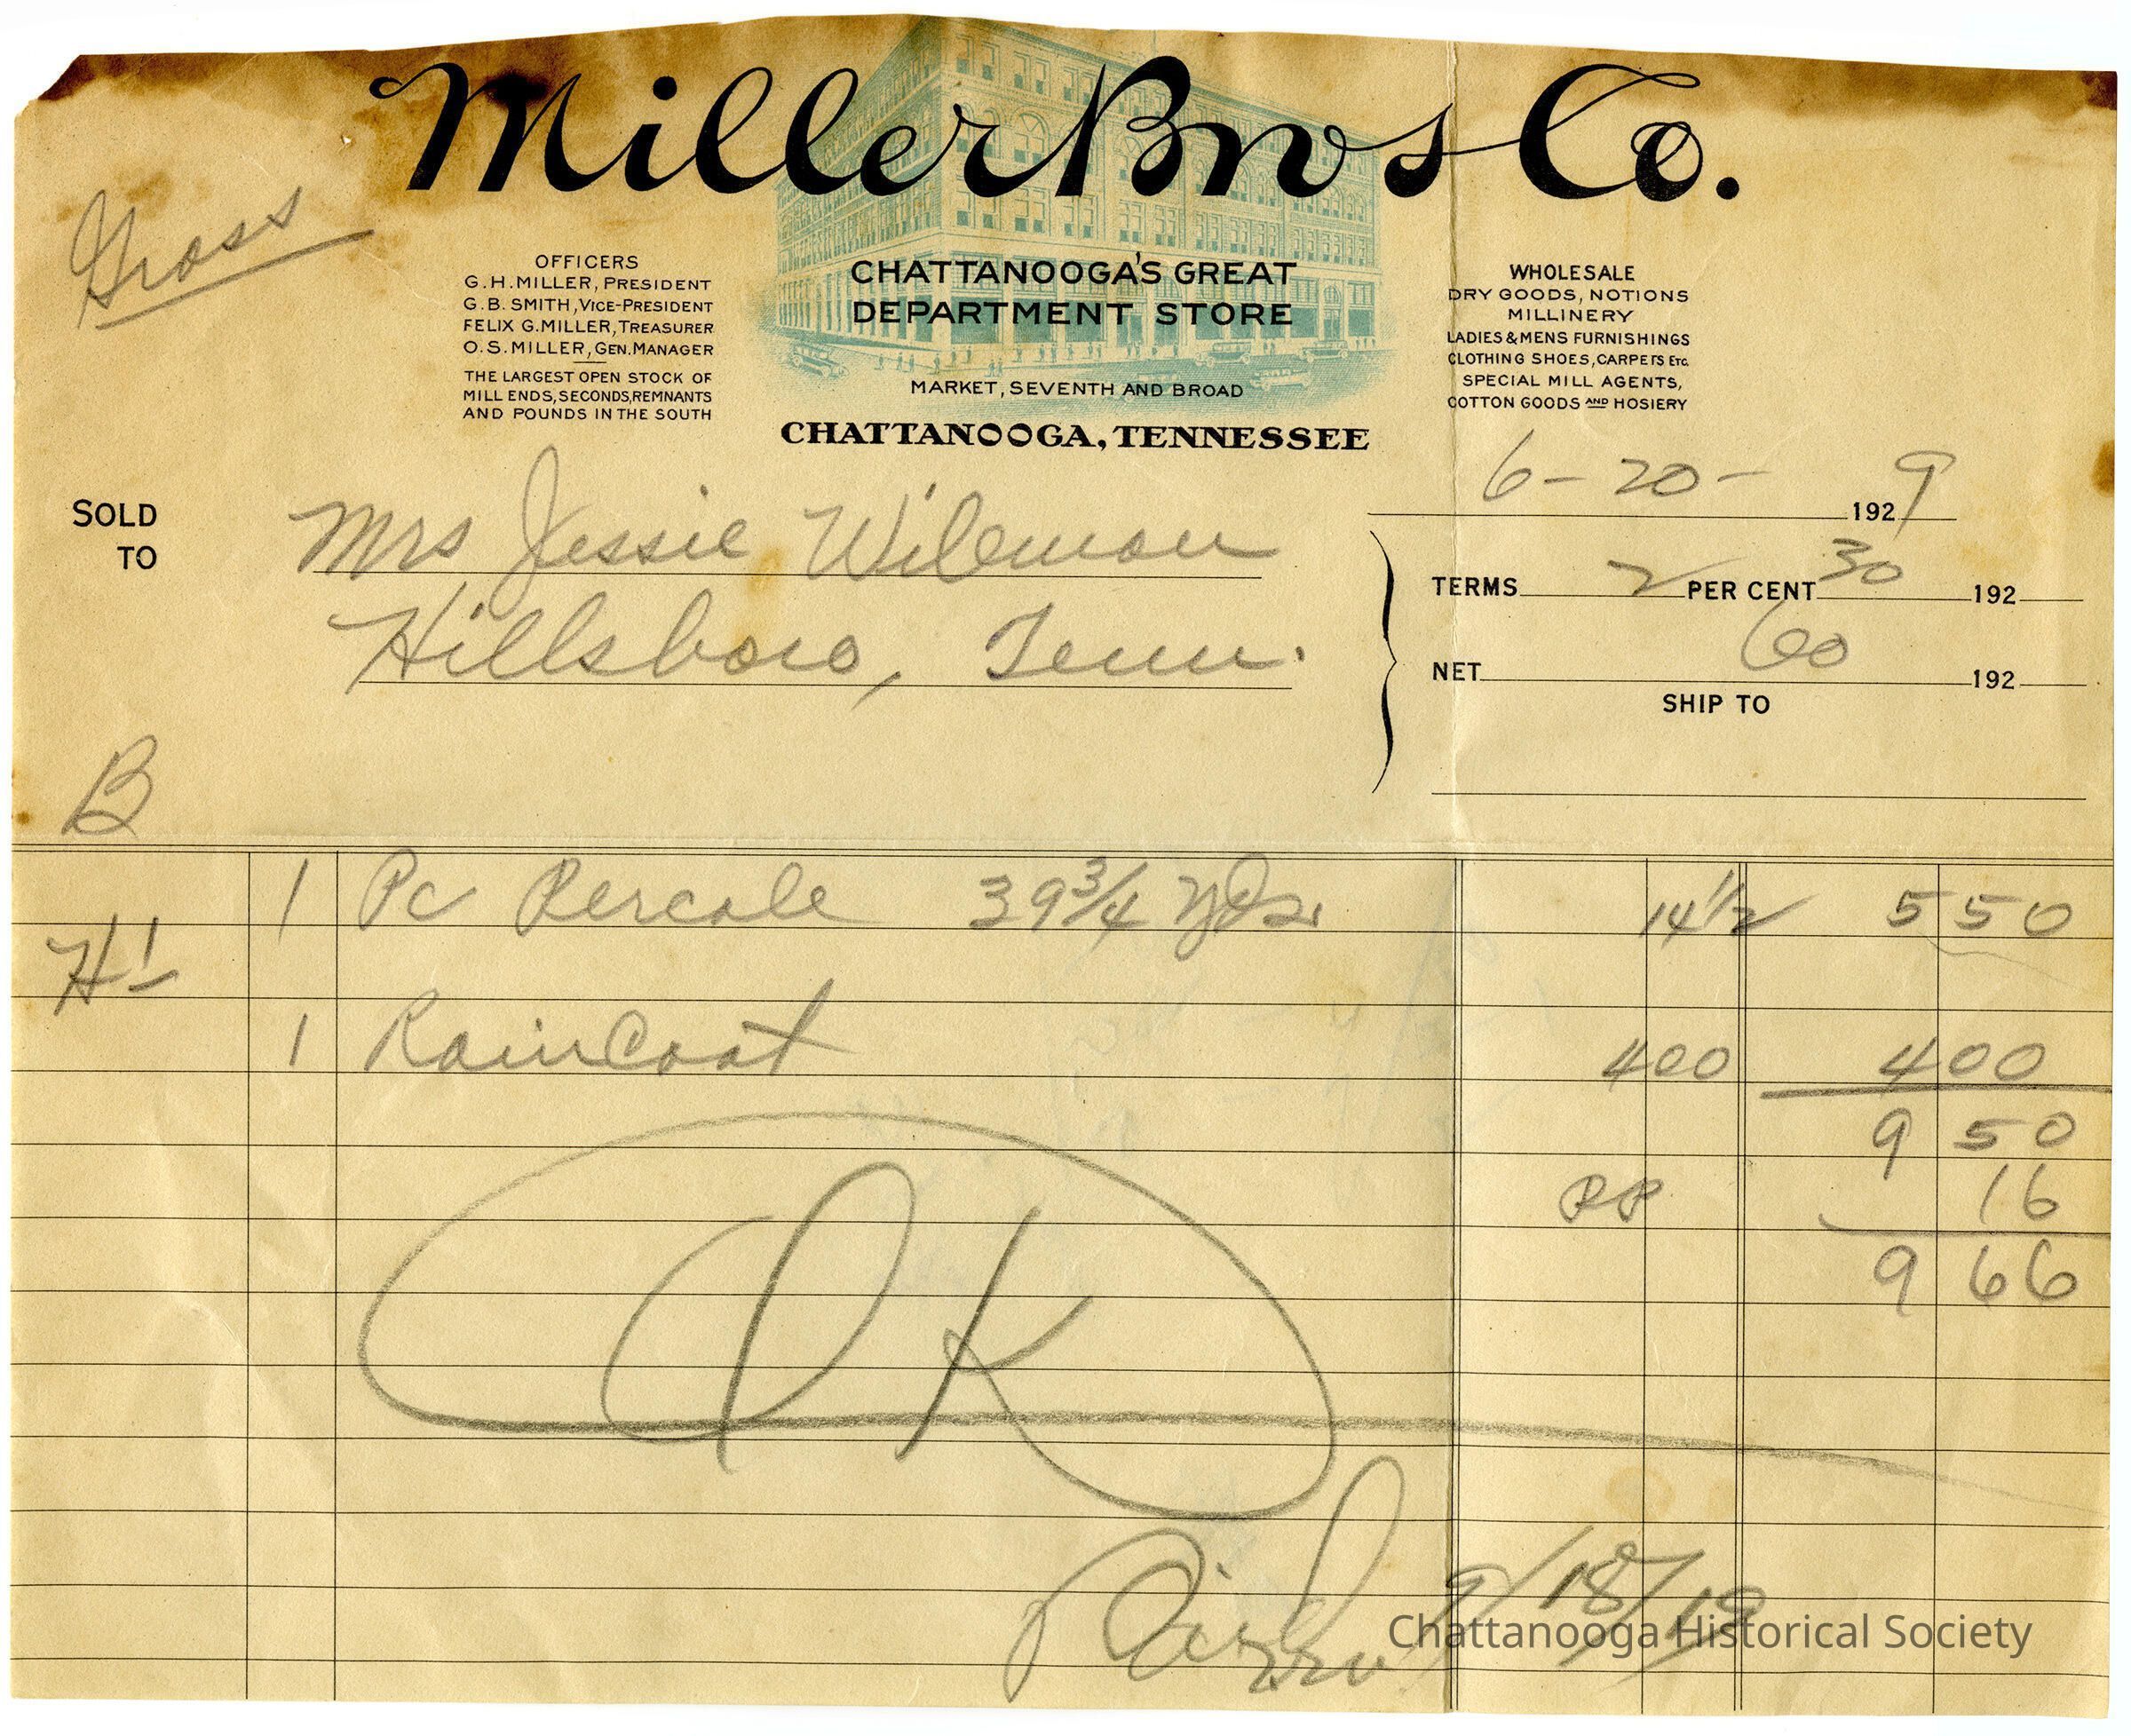 Miller Bros Co.
Gross
OFFICERS
G.H. MILLER, PRESIDENT
G.B. SMITH, VICE-PRESIDENT
FELIX G. MILLER, TREASURER
O.S. MILLER, GEN. MANAGER
THE LARGEST OPEN STOCK OF
MILL ENDS, SECONDS, REMNANTS
AND POUNDS IN THE SOUTH
CHATTANOOGA'S GREAT
DEPARTMENT STORE
MARKET, SEVENTH AND BROAD
CHATTANOOGA, TENNESSEE
WHOLESALE
DRY GOODS, NOTIONS
MILLINERY
LADIES & MENS FURNISHINGS
CLOTHING SHOES, CARPETS ETC.
SPECIAL MILL AGENTS,
COTTON GOODS AND HOSIERY
6-20- 1929
SOLD
TO
Mrs Jessie Wileman
Hillsboro, Tenn.
TERMS 2 PER CENT 30 192
NET 60 192
SHIP TO
B
1 Pc Percale 39 3/4 Yds. 14 1/2 5 50
H1
1 RainCoat 400 4 00
9 50
PP 16
9 66
OK
9/18/19
Chattanooga Historical Society